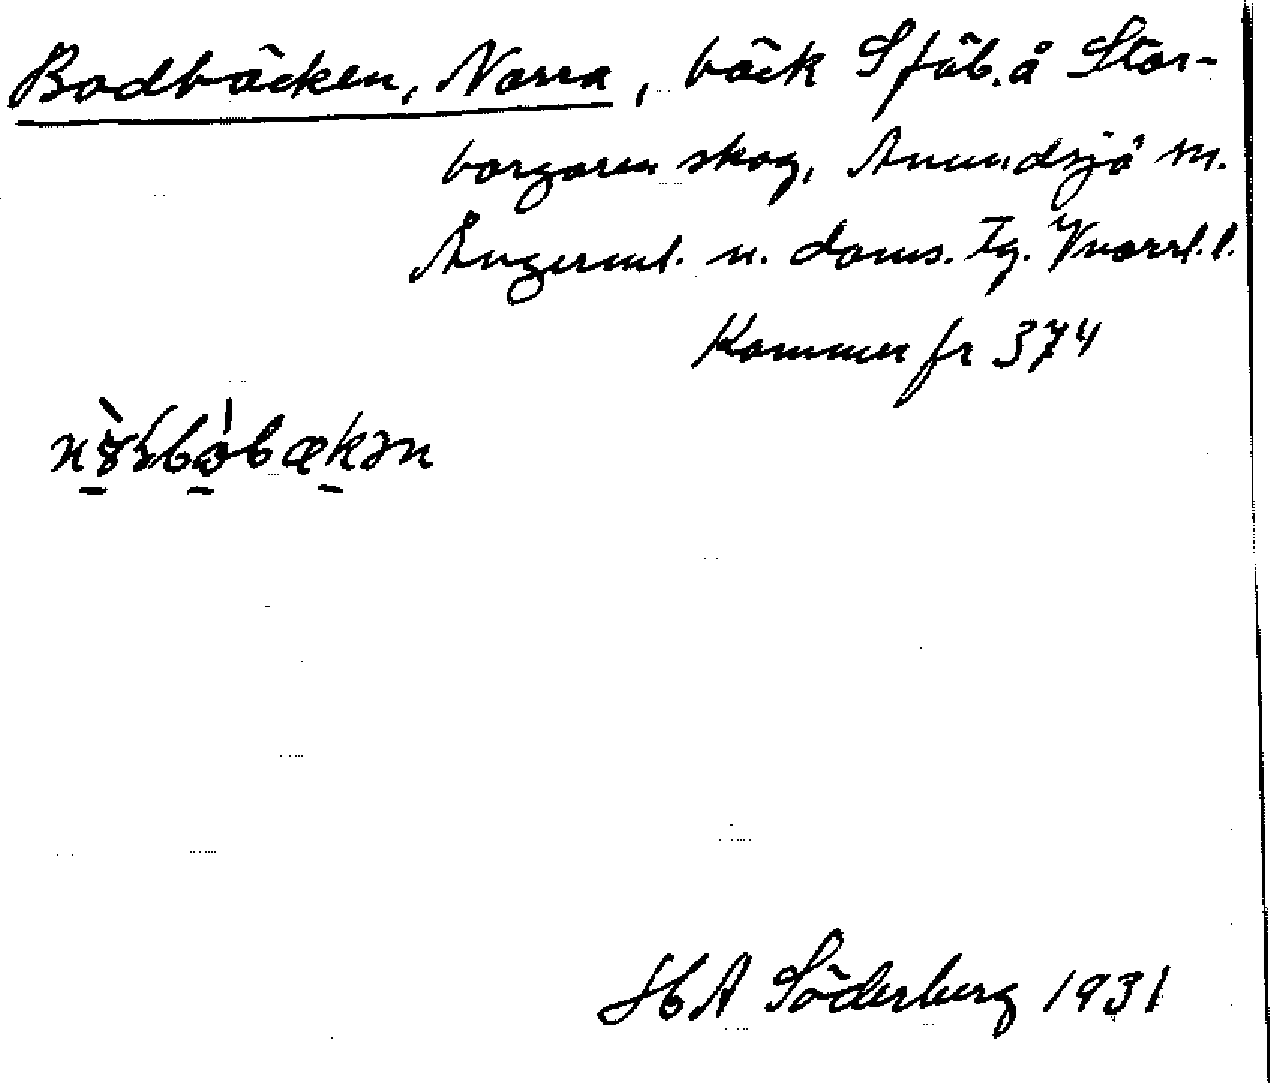 Bodbäcken, Norra, bäck S fäb. å Stor-
borgaren skog, Anundsjö sn.
Ångerml. n. doms. Tg. Vnorrl. l.
Kommer fr 374
H A Söderberg 1931